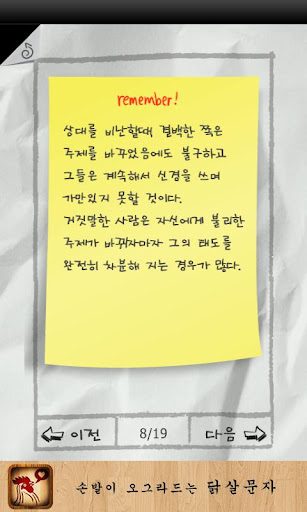 remember!
상대를 비난할때, 결백한 쪽은
주제를 바꾸었음에도 불구하고
그들은 계속해서 신경을 쓰며
가만있지 못할 것이다.
거짓말한 사람은 자신에게 불리한
주제가 바뀌자마자 그의 태도를
완전히 차분해 지는 경우가 많다.
이전 8/19 다음
손발이 오그라드는 닭살문자